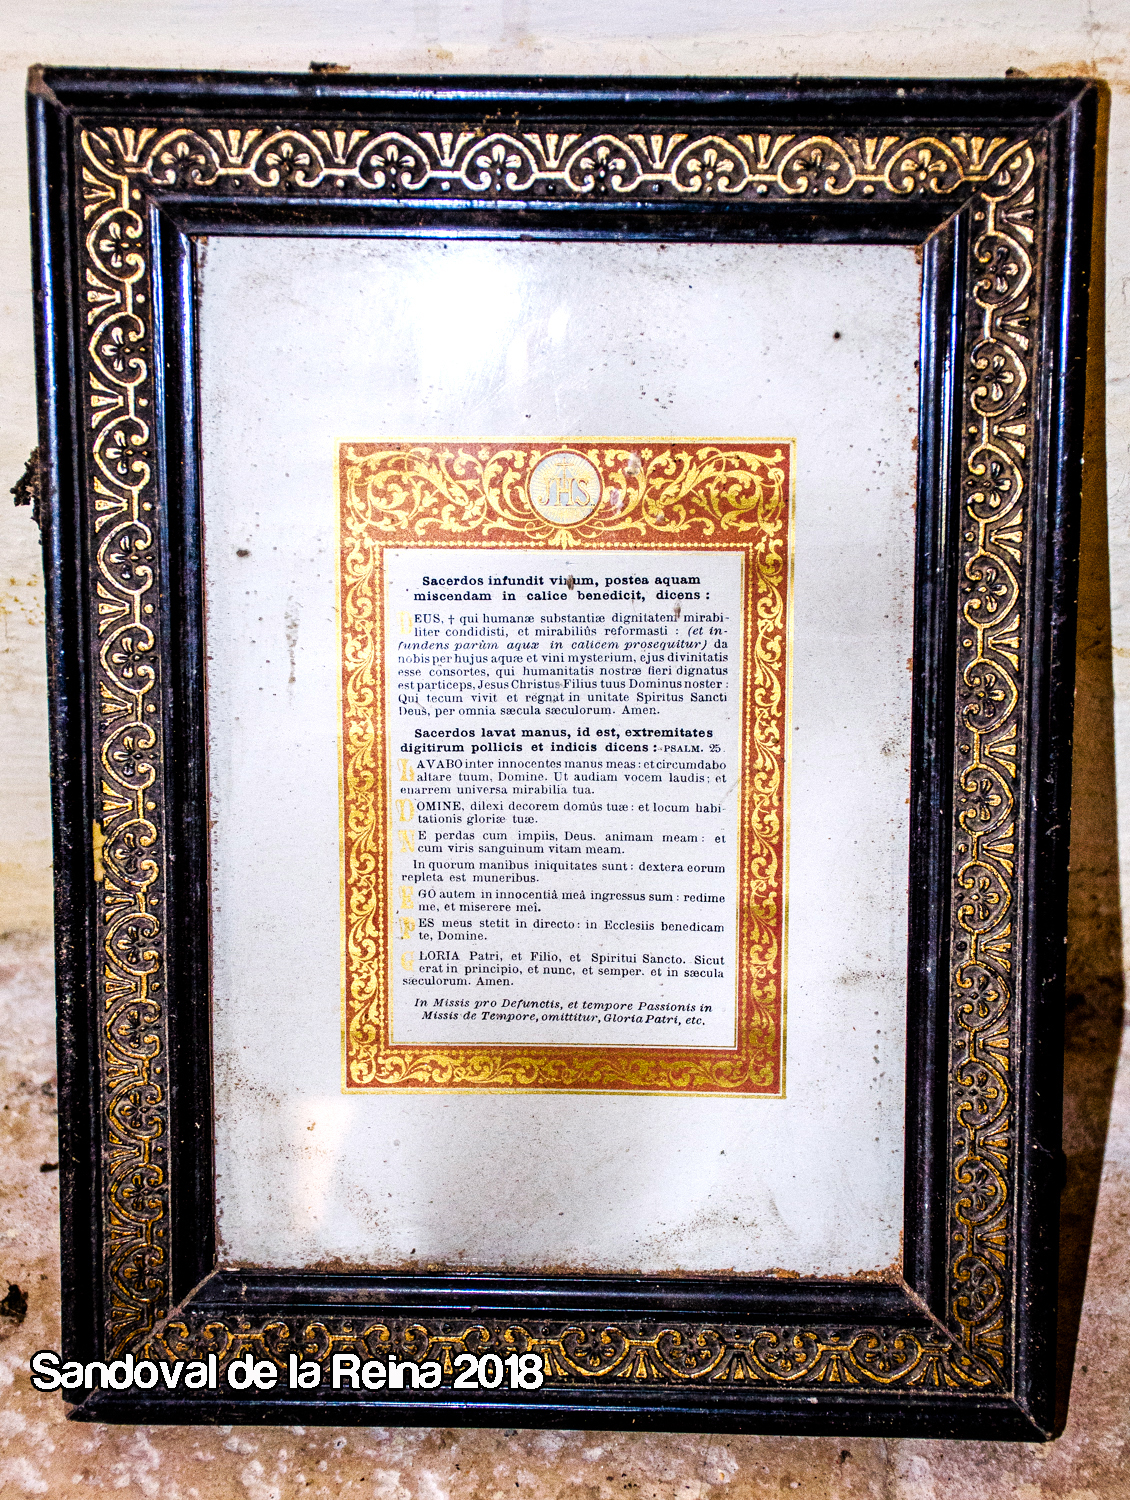 JHS
Sacerdos infundit vinum, postea aquam
miscendam in calice benedicit, dicens :
DEUS, † qui humanæ substantiæ dignitatem mirabi-
liter condidisti, et mirabiliùs reformasti : (et in-
fundens parùm aquæ in calicem prosequitur) da
nobis per hujus aquæ et vini mysterium, ejus divinitatis
esse consortes, qui humanitatis nostræ fieri dignatus
est particeps, Jesus Christus Filius tuus Dominus noster :
Qui tecum vivit et régnat in unitate Spiritus Sancti
Deus, per omnia sæcula sæculorum. Amen.
Sacerdos lavat manus, id est, extremitates
digitirum pollicis et indicis dicens : PSALM. 25.
LAVABO inter innocentes manus meas : et circumdabo
altare tuum, Domine. Ut audiam vocem laudis ; et
enarrem universa mirabilia tua.
DOMINE, dilexi decorem domûs tuæ : et locum habi-
tationis gloriæ tuæ.
NE perdas cum impiis, Deus. animam meam : et
cum viris sanguinum vitam meam.
In quorum manibus iniquitates sunt : dextera eorum
repleta est muneribus.
EGO autem in innocentiâ meâ ingressus sum : redime
me, et miserere mei.
PES meus stetit in directo : in Ecclesiis benedicam
te, Domine.
GLORIA Patri, et Filio, et Spiritui Sancto. Sicut
erat in principio, et nunc, et semper. et in sæcula
sæculorum. Amen.
In Missis pro Defunctis, et tempore Passionis in
Missis de Tempore, omittitur, Gloria Patri, etc.
Sandoval de la Reina 2018